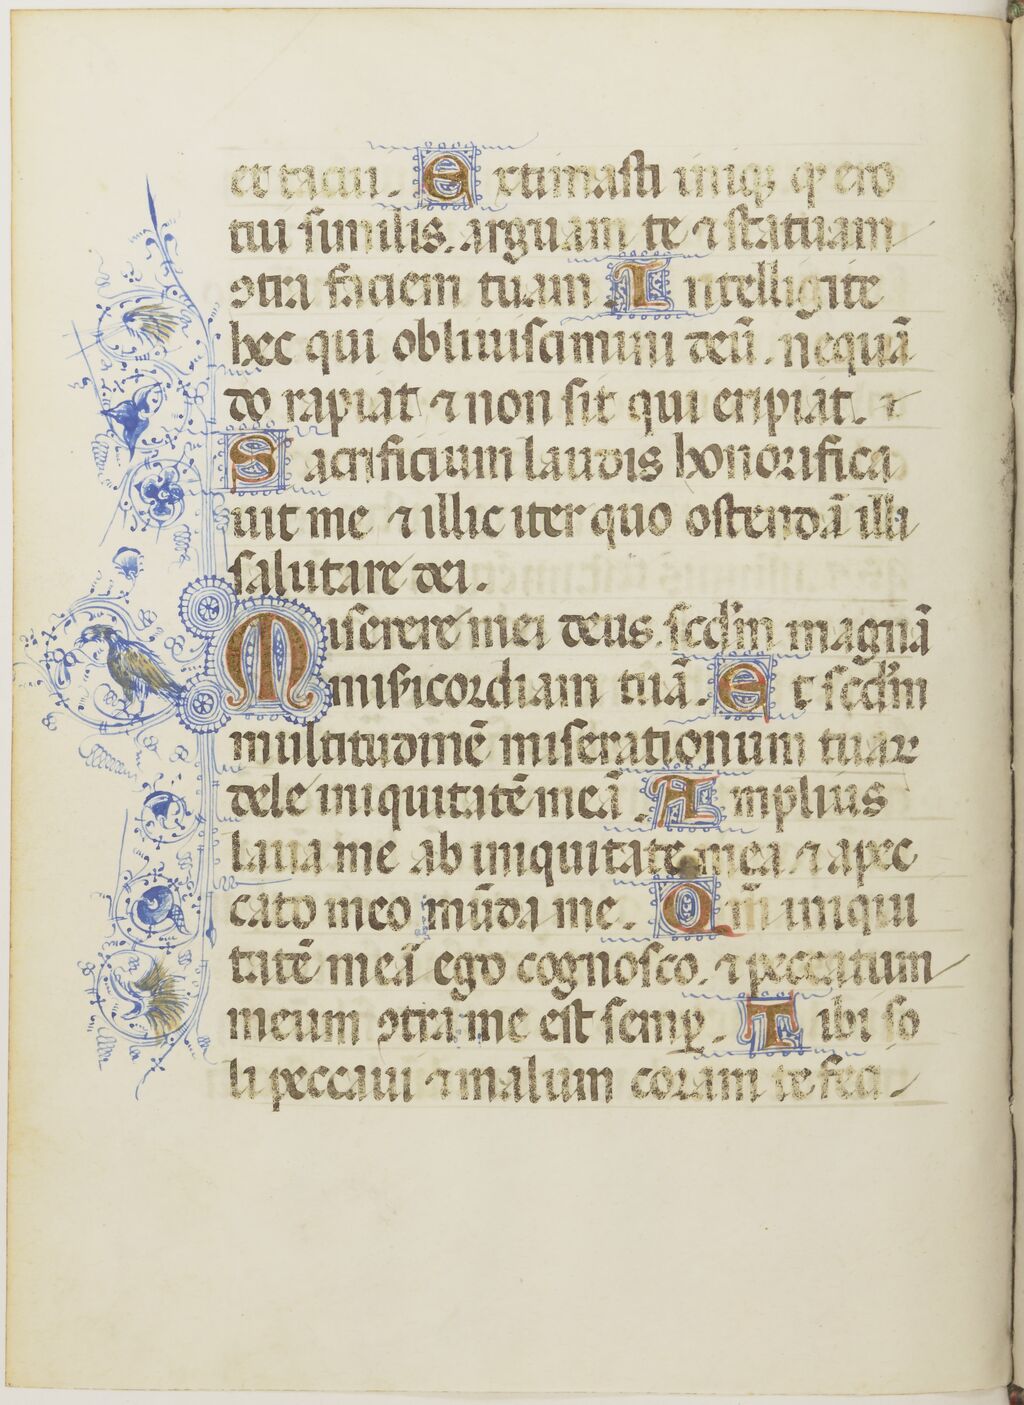 et tacui. Extimasti iniq; qꝭ ero
tui similis. arguam te ⁊ statuam
ꝯtra faciem tuam. Intelligite
hec qui obliuiscimini deū. nequā
do rapiat ⁊ non sit qui eripiat. ⁊
Sacrificium laudis honorifica
uit me ⁊ illic iter quo ostendā illi
salutare dei.
Miserere mei deus. scd̄m magnā
misꝭicordiam tuā. Et scd̄m
multitudinē miserationum tuaꝝ
dele iniquitatē meā. Amplius
laua me ab iniquitate mea. ⁊ a pec
cato meo mūda me. Qm̄ iniqui
tatē meā ego cognosco. ⁊ peccatum
meum ꝯtra me est semꝑ. Tibi so
li peccaui ⁊ malum coram te feci.